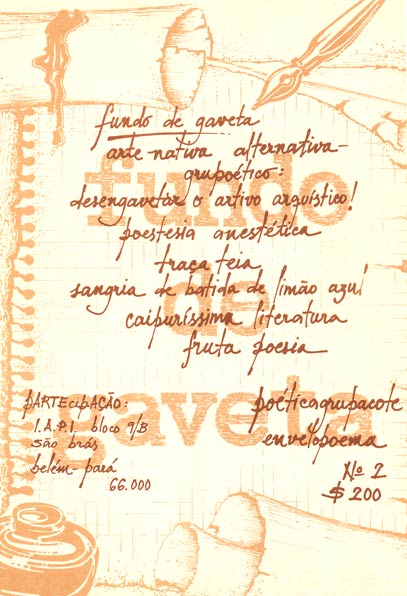 fundo de gaveta
arte-nativa alternativa-
grupoético:
desengavetar o artivo arquístico!
poestesia anestética
traça teia
sangria de batida de limão azul
caipuríssima literatura
fruta poesia
fundo
de
gaveta
PARTEcipAÇÃO:
I.A.P.I. bloco 9/B
são brás
belém-pará
66.000
poéticagrupacote
envelopoema
Nº 2
$ 200